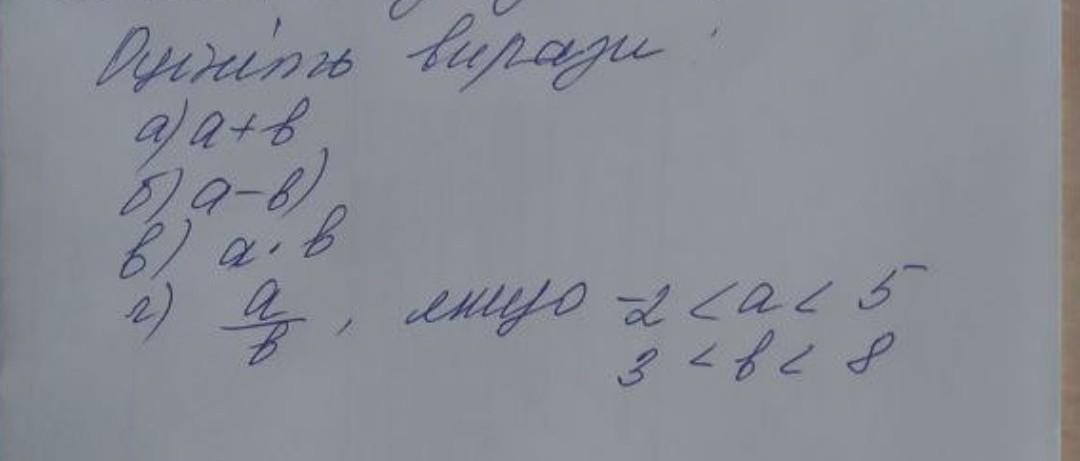 Оцініть вирази
а) a+b
б) a-b)
в) a·b
г) a/b, якщо -2 < a < 5
3 < b < 8